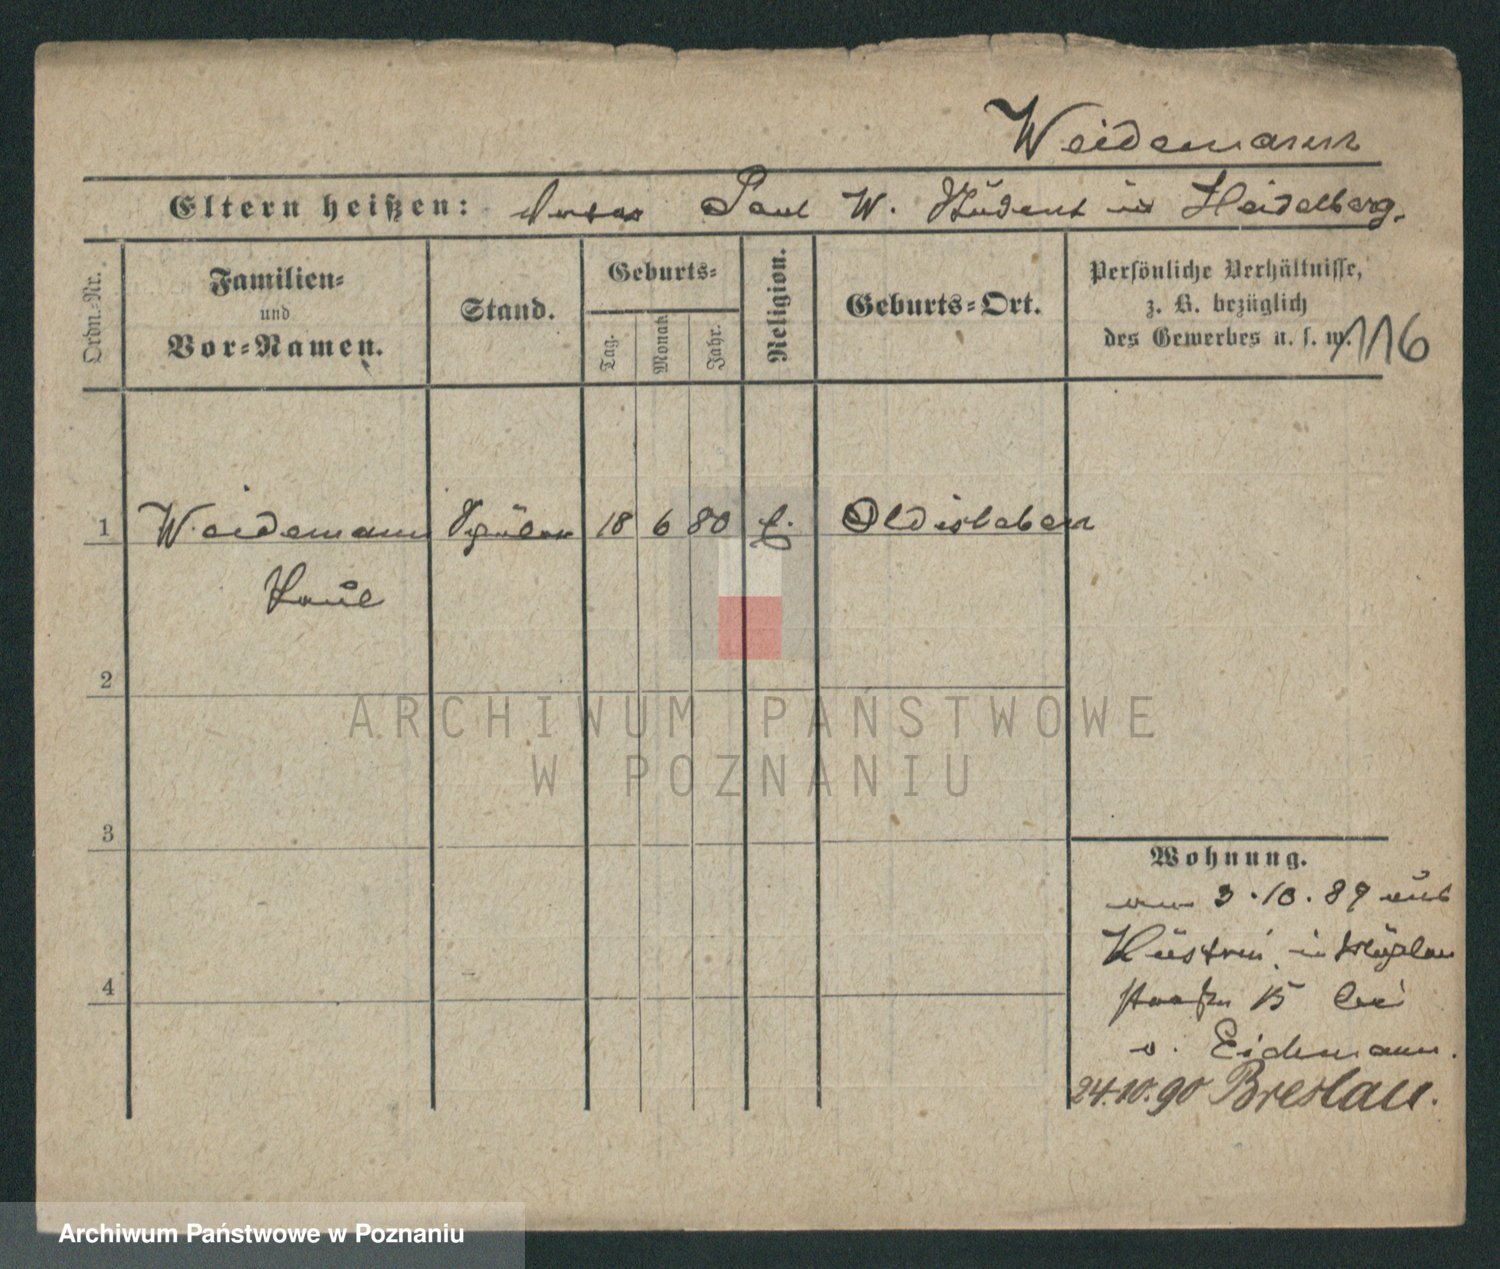 Weidemann
Eltern heißen: Vater Paul W. Student in Heidelberg.
Ordn.-Nr.
Familien-
und
Vor-Namen.
Stand.
Geburts-
Tag.
Monat
Jahr.
Religion.
Geburts-Ort.
Persönliche Verhältnisse,
z. B. bezüglich
des Gewerbes u. s. w.
116
1 Weidemann Schüler 18 6 80 E. Oldisleben
Paul
2
3
4
Wohnung.
am 3.10.89 aus
Küstrin in
straße 15 bei
v. Eichmann.
24.10.90 Breslau.
ARCHIWUM PAŃSTWOWE
W POZNANIU
Archiwum Państwowe w Poznaniu